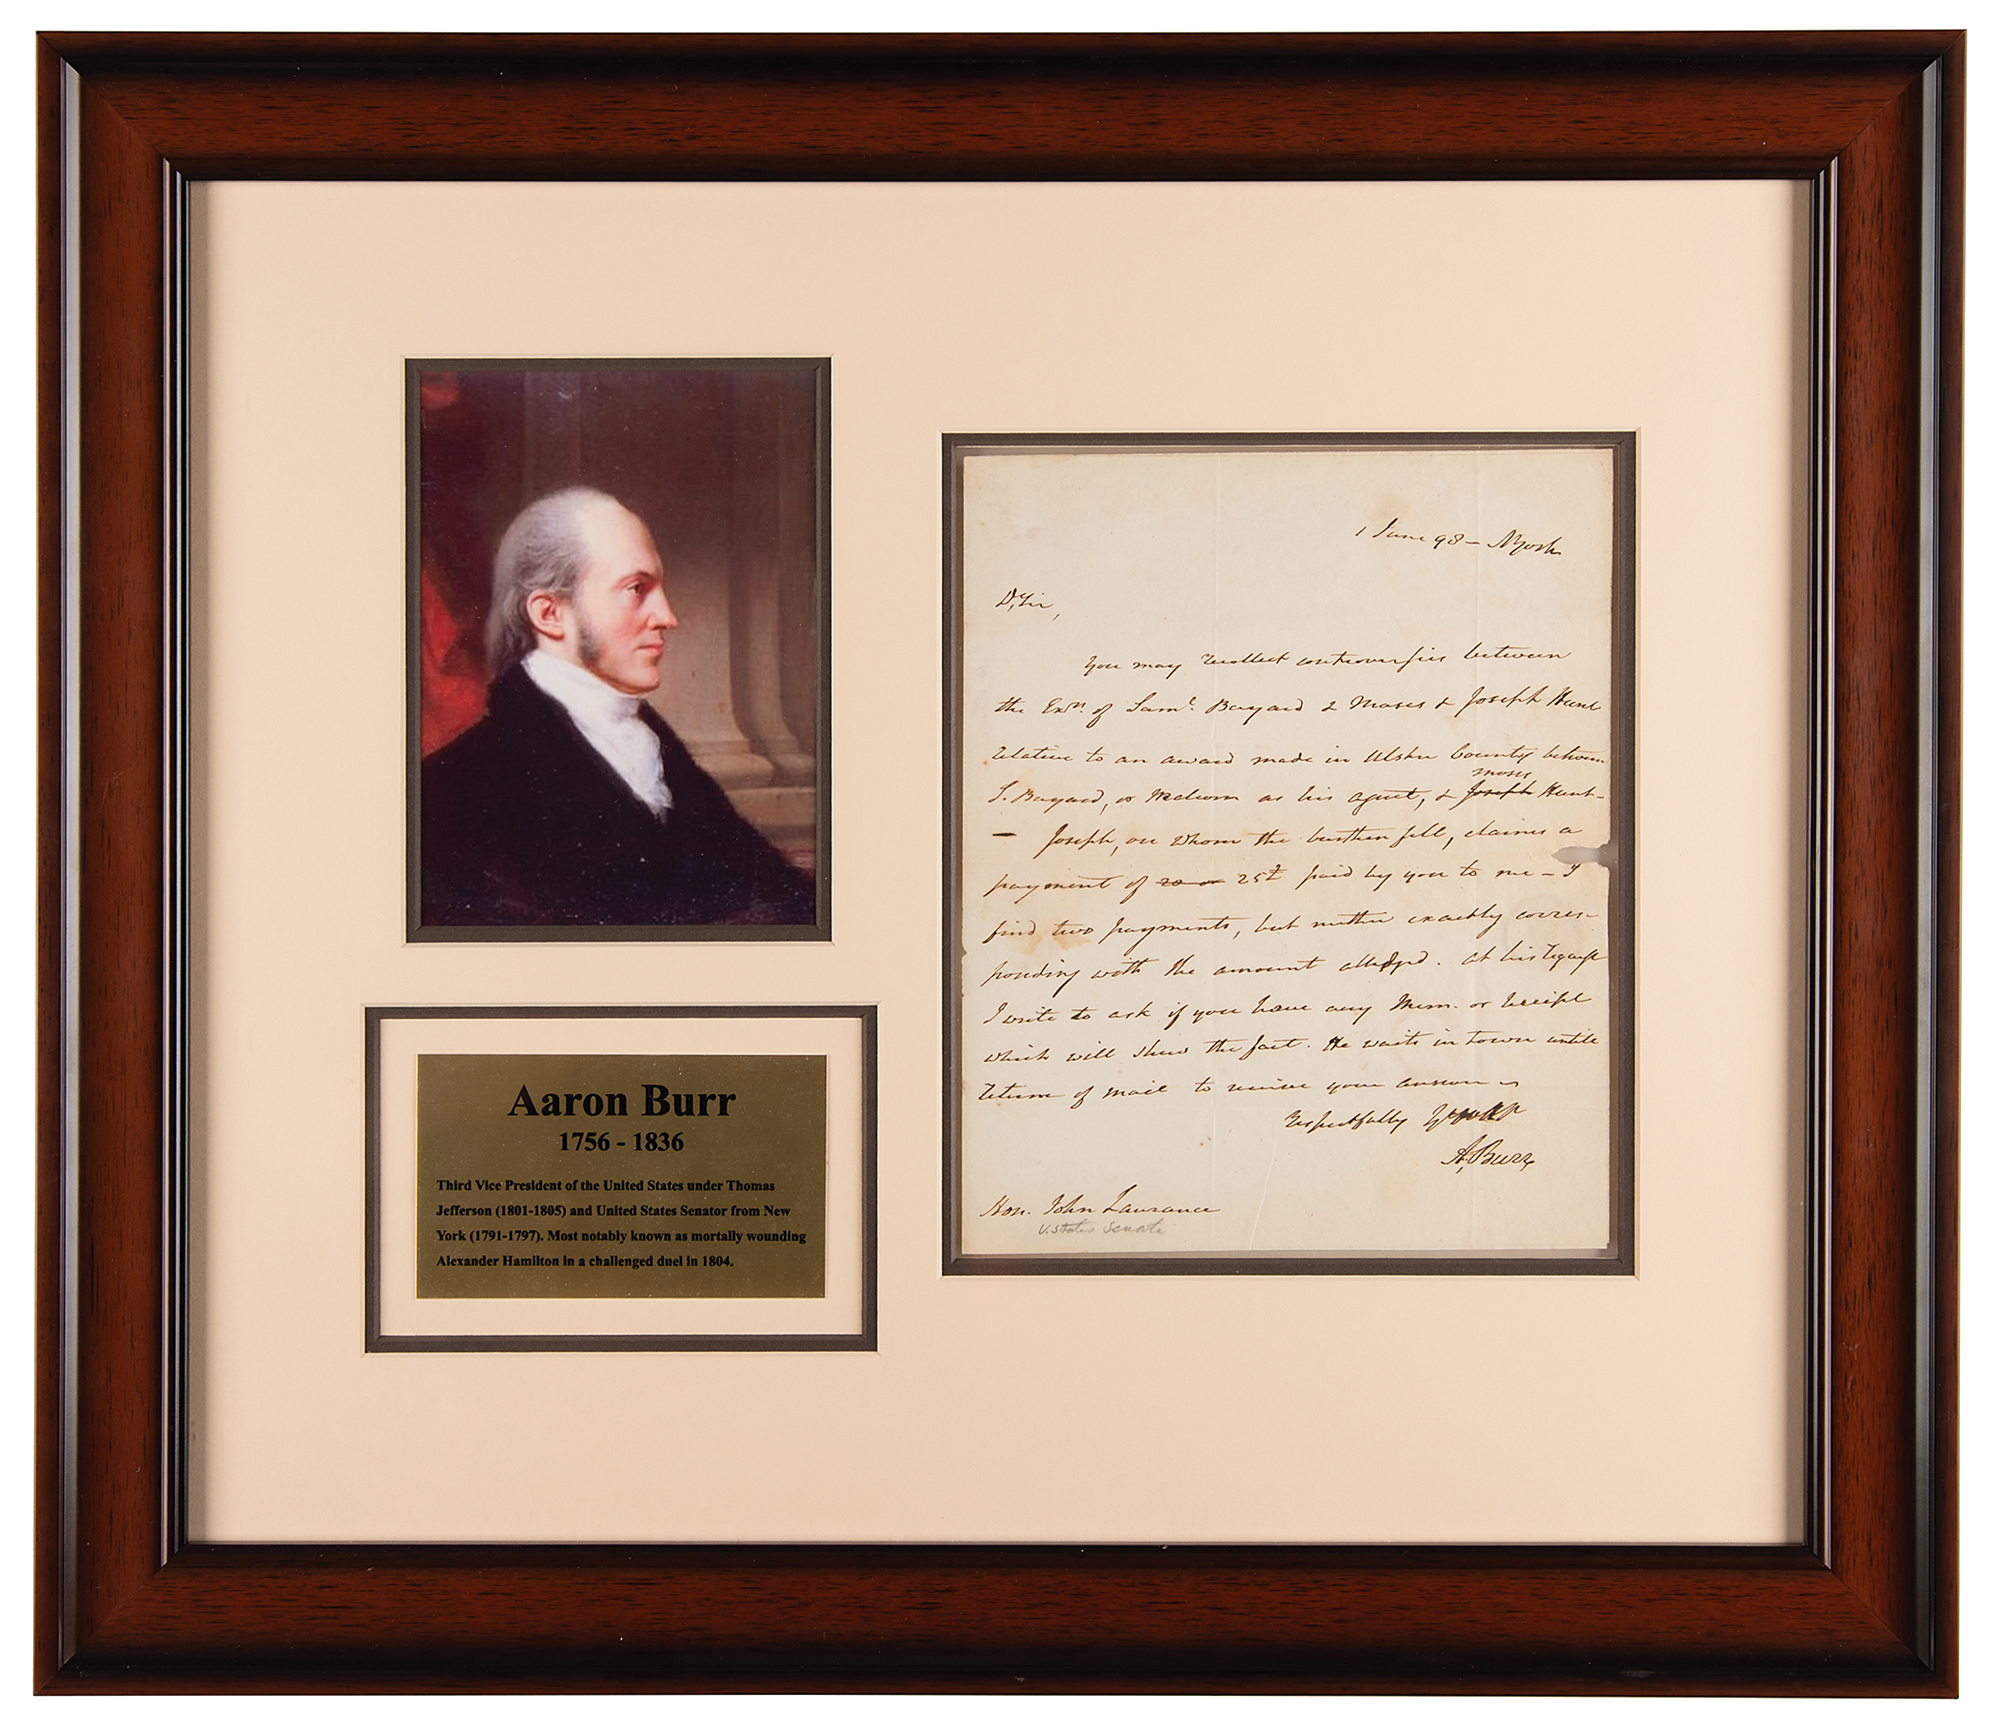 Aaron Burr
1756 - 1836
Third Vice President of the United States under Thomas
Jefferson (1801-1805) and United States Senator from New
York (1791-1797). Most notably known as mortally wounding
Alexander Hamilton in a challenged duel in 1804.
1 June 98 – NYork
D. Sir,
You may recollect controversies between
the Exrs. of Saml. Bayard & Moses & Joseph Hunt
relative to an award made in Ulster County between
moses
S. Bayard, or as his agent, & Joseph Hunt –
– Joseph, on whom the burthen fell, claims a
payment of 20 or 25£ paid by you to me – I
find two payments, but neither exactly corres-
ponding with the amount alledged. At his request
I write to ask if you have any Mem. or receipt
which will shew the fact. He waits in town until
return of mail to receive your answer
Respectfully
A. Burr
Hon. John Laurance
U. States Senate